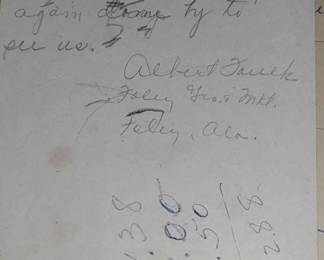 again come by to
see us.
Albert Fouck
Foley Gro. & Mkt.
Foley, Ala.
.38
.00
.50
288